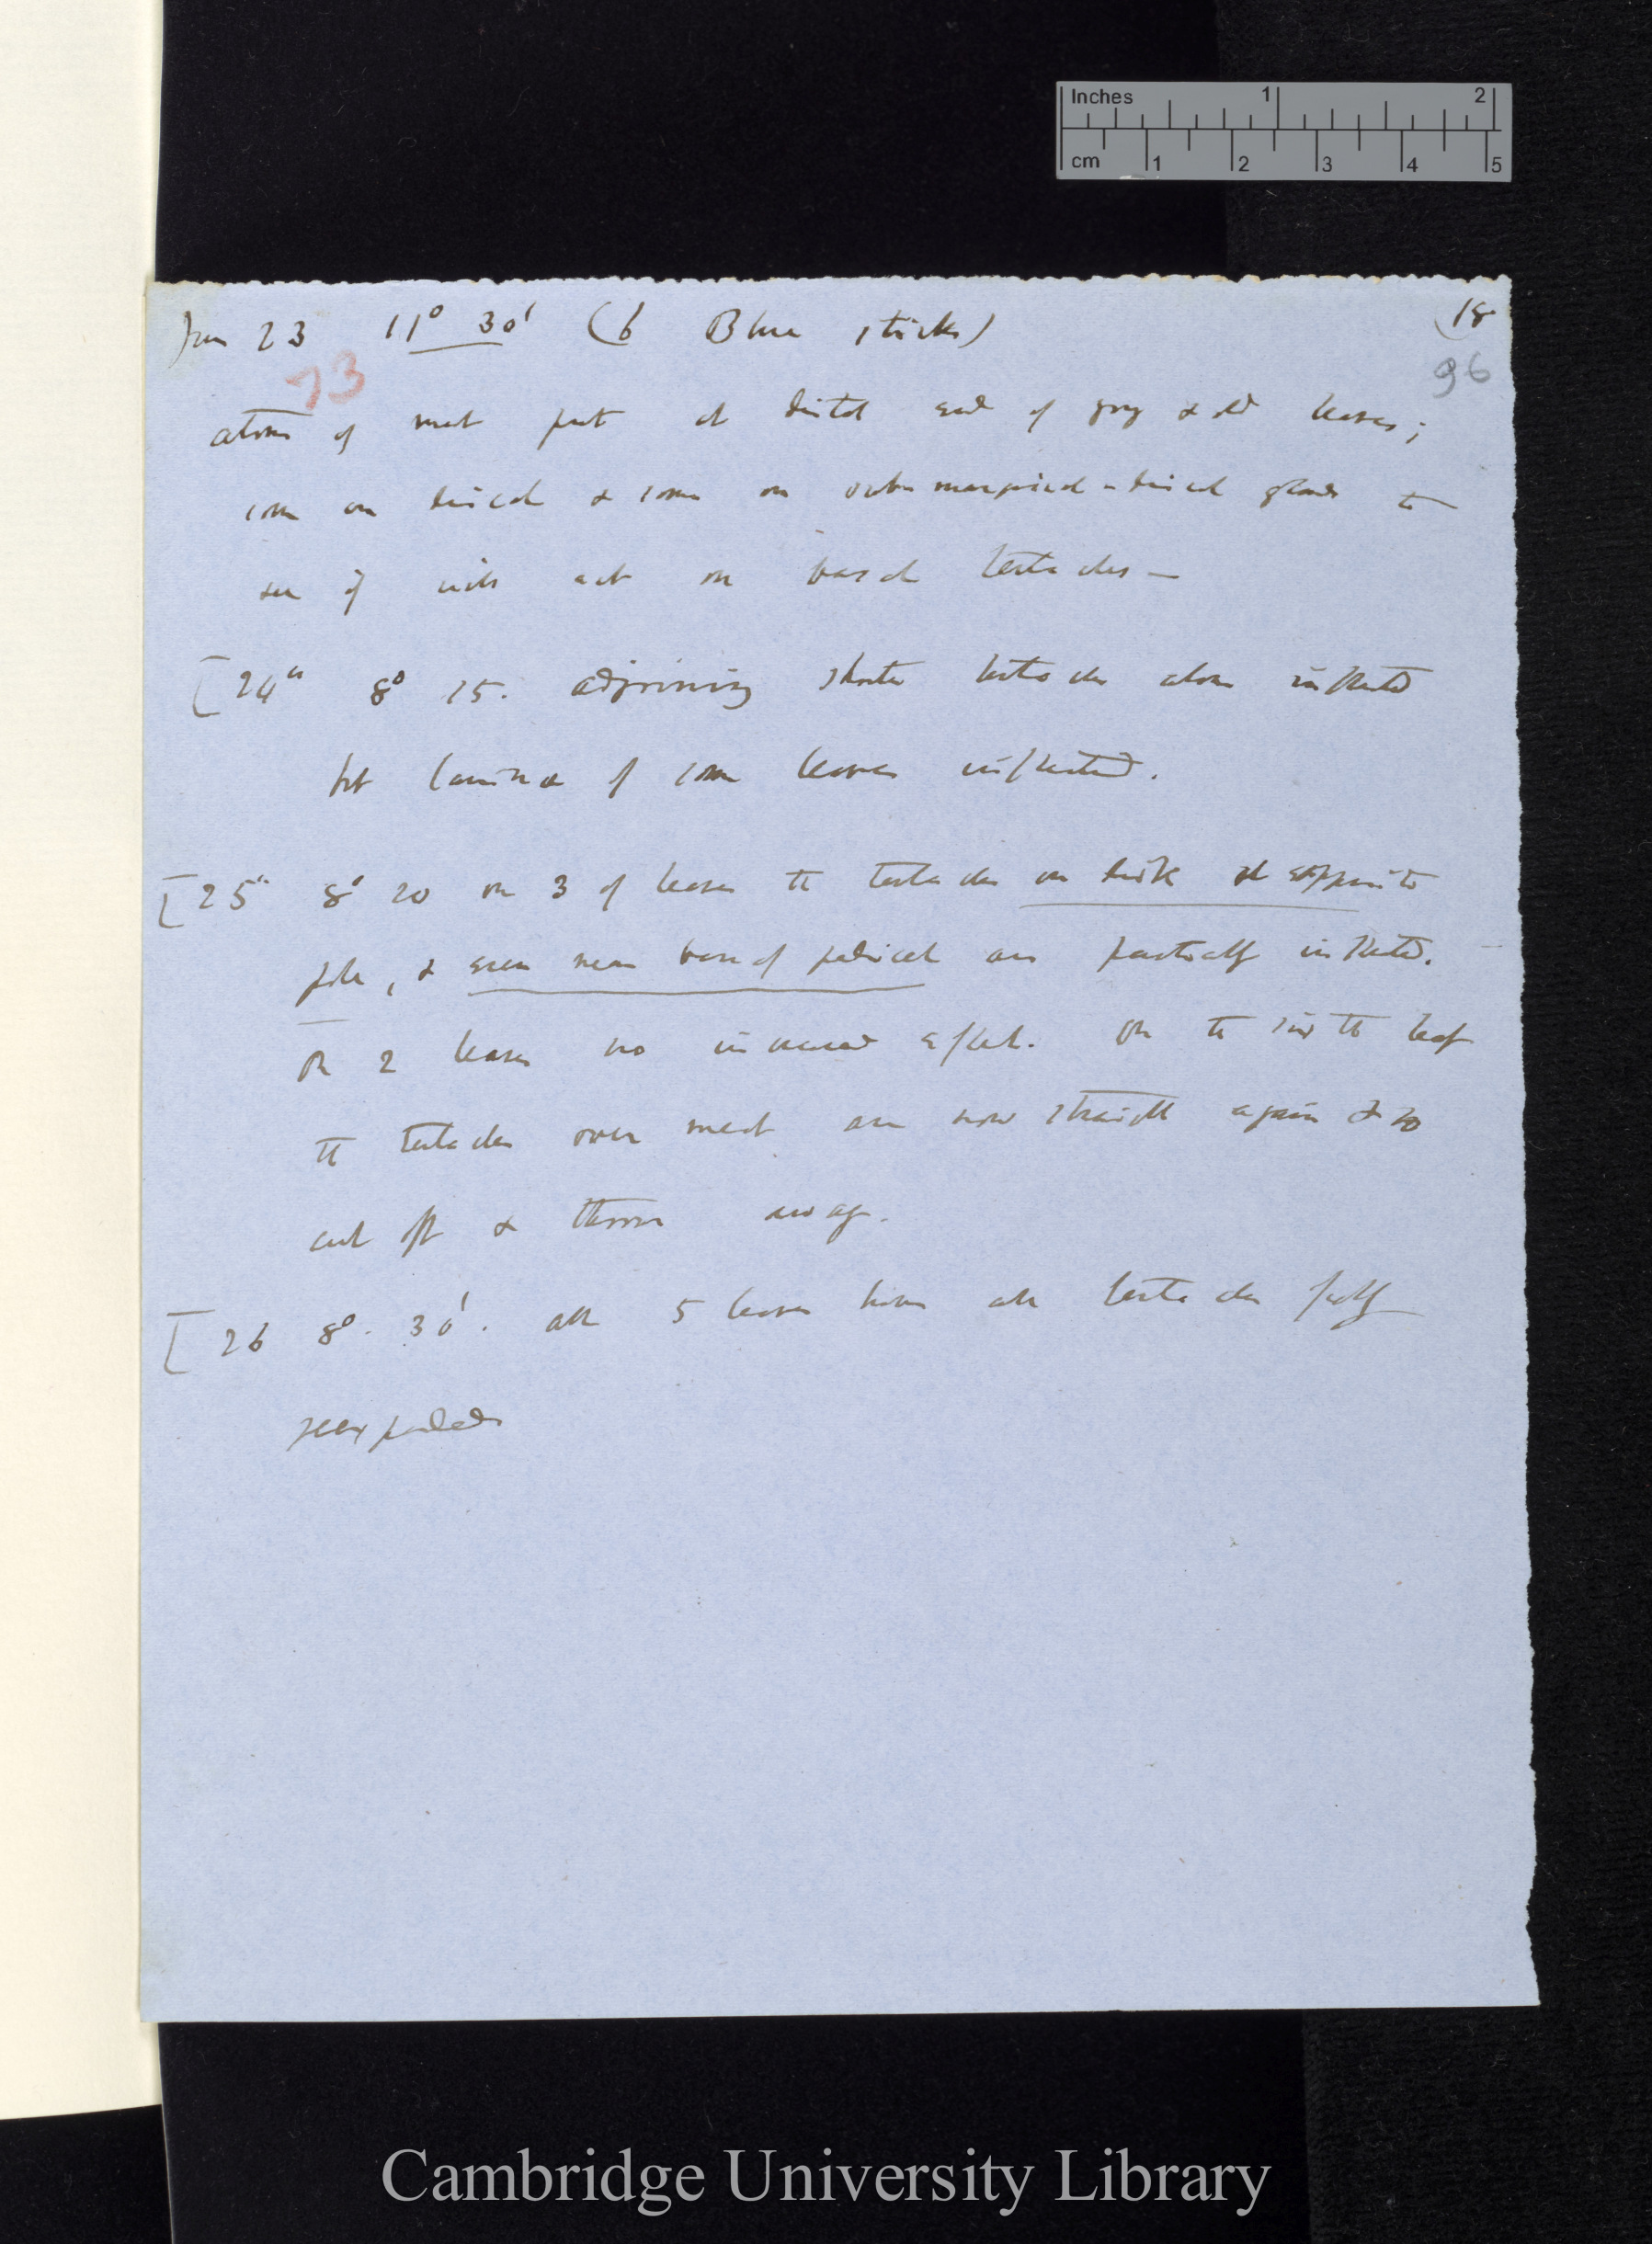 Inches 1 2
cm 1 2 3 4 5
June 23 11° 30' (6 Blue sticks) (18
73 96
atoms of meat put at distal end of young & old leaves;
some on discal & some on outer marginal-discal glands to
see if will act on basal tentacles—
[24th 8° 15. adjoining shorter tentacles alone inflected
but lamina of some leaves inflected.
[25th 8° 20 on 3 of leaves the tentacles on disk at opposite
side, & even near base of pedicel are partially inflected.
On 2 leaves no increased effect. On the sixth leaf
the tentacles over meat are now straight again & so
cut off & thrown away.
[26 8°. 30'. all 5 leaves have all tentacles fully
reexpanded
Cambridge University Library